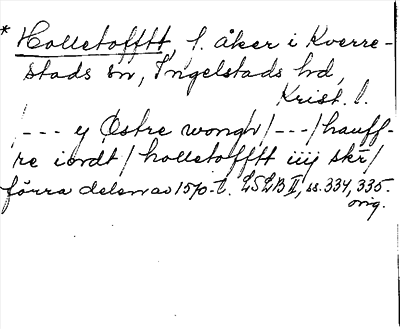 * Holletofftt, f. åker i Kverre-
stads sn, Ingelstads hd,
Krist. l.
/--- y Østre wongh/---/hauff-
re iordt/holletofftt iiij skr/
förra delen av 1570-t. LSLB II, ss. 334, 335.
orig.